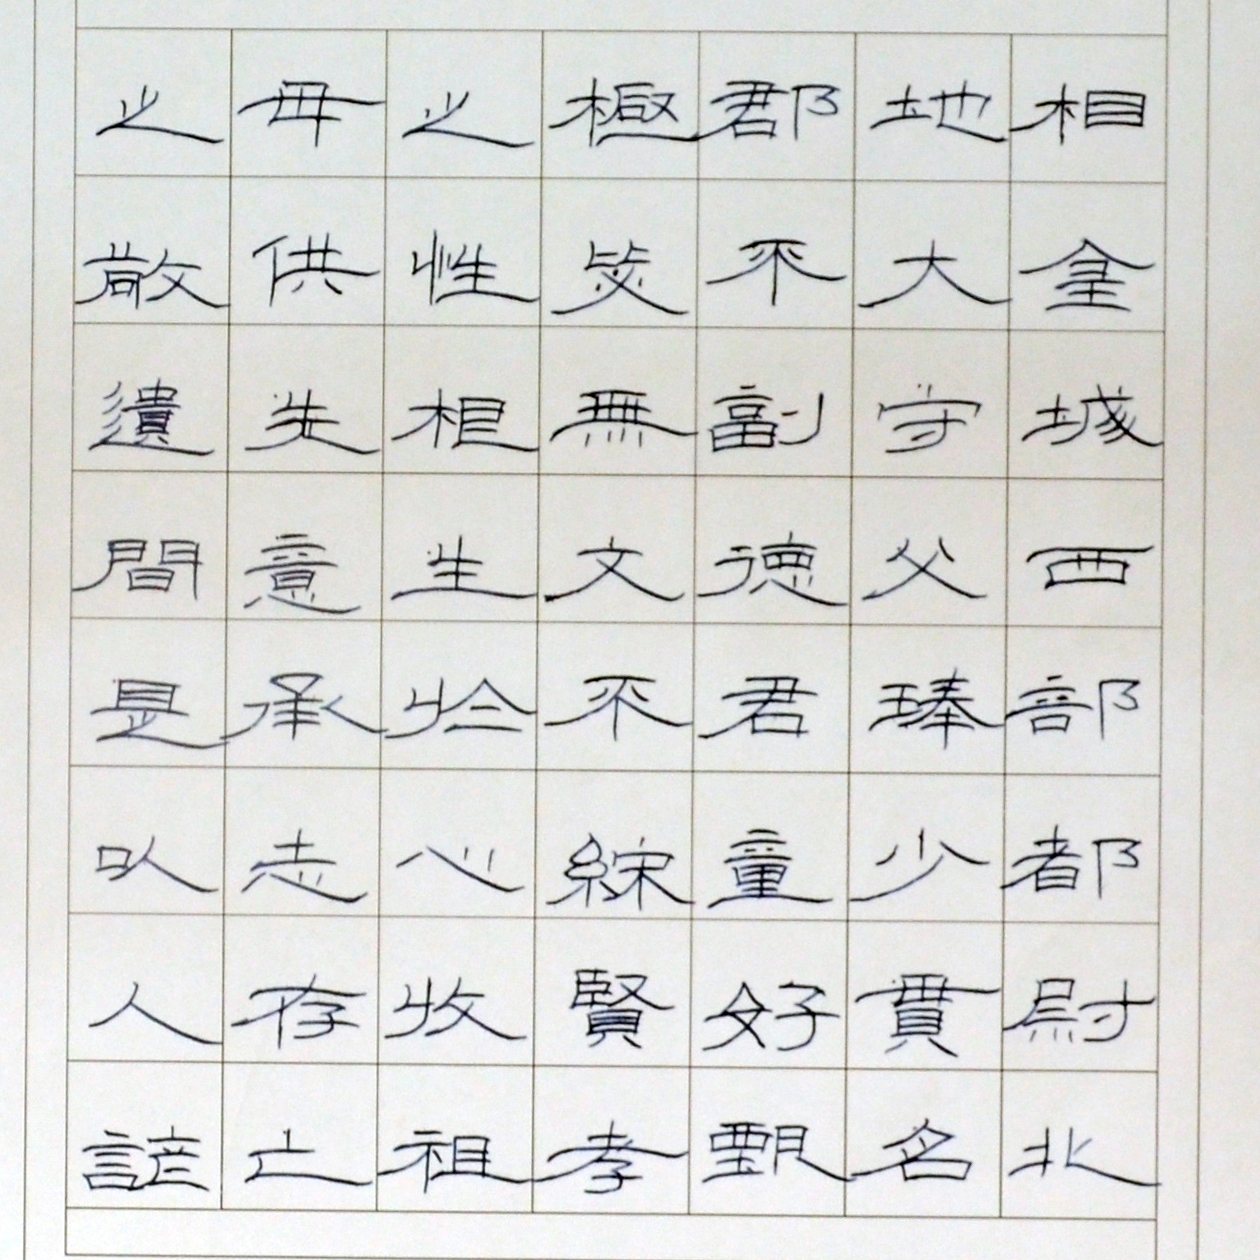 相金城西部都尉北
地大守父琫少貫名
郡不副德君童好甄
極毖無文不綜賢孝
之性根生於心收祖
母供先意承志存亡
之敬遺間是以人諺